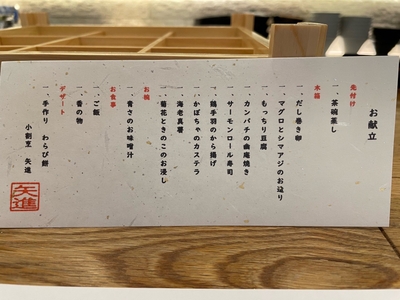 お献立
先付け
一、茶碗蒸し
木箱
一、だし巻き卵
一、マグロとシマアジのお造り
一、もっちり豆腐
一、カンパチの幽庵焼き
一、サーモンロール寿司
一、鶏手羽のから揚げ
一、かぼちゃのカステラ
一、海老真薯
一、菊花ときのこのお浸し
お椀
一、青さのお味噌汁
お食事
一、ご飯
一、香の物
デザート
一、手作り わらび餅
小割烹 矢進
矢進